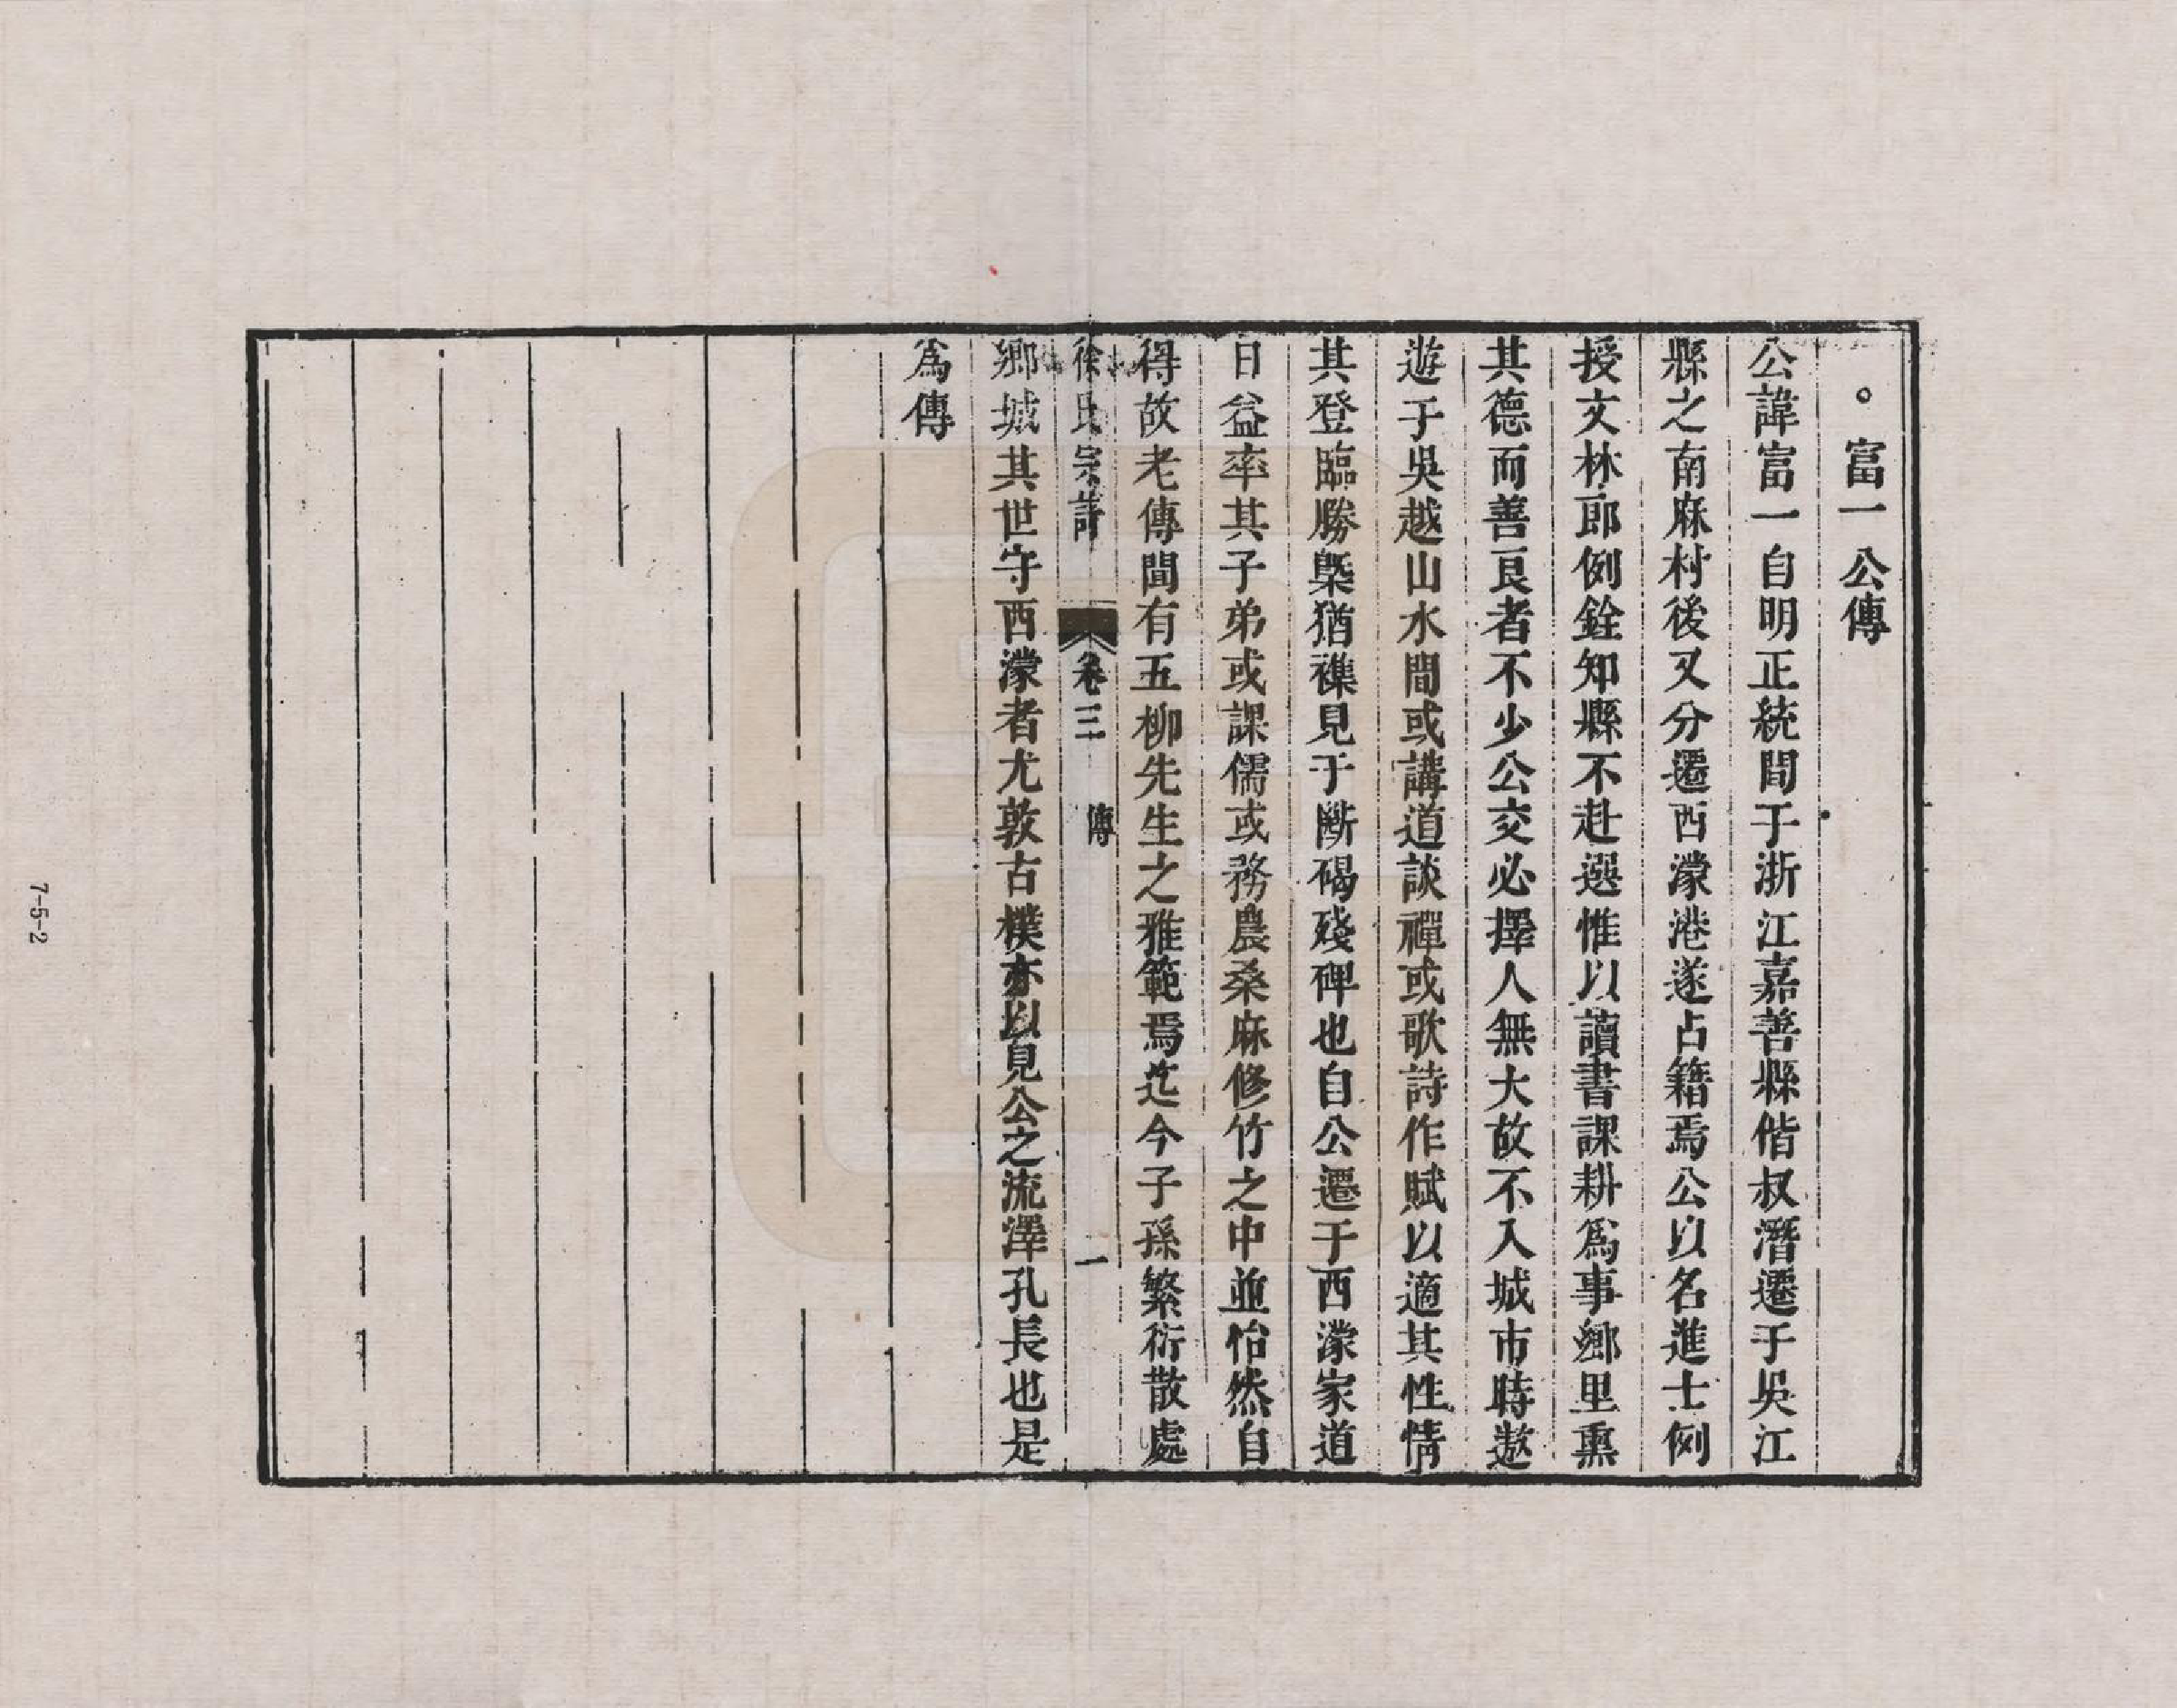 。富一公傳
公諱富一自明正統間于浙江嘉善縣偕叔潛遷于吳江
縣之南麻村後又分遷西濛港遂占籍焉公以名進士例
授文林郎例銓知縣不赴選惟以讀書課耕爲事鄉里熏
其德而善良者不少公交必擇人無大故不入城市時遨
遊于吳越山水間或講道談禪或歌詩作賦以適其性情
其登臨勝槩猶襍見于斷碣殘碑也自公遷于西濛家道
日益率其子弟或課儒或務農桑麻修竹之中並怡然自
得故老傳聞有五柳先生之雅範焉迄今子孫繁衍散處
徐氏宗譜 卷三 傳 一
鄉城其世守西濛者尤敦古樸亦以見公之流澤孔長也是
爲傳
7-5-2